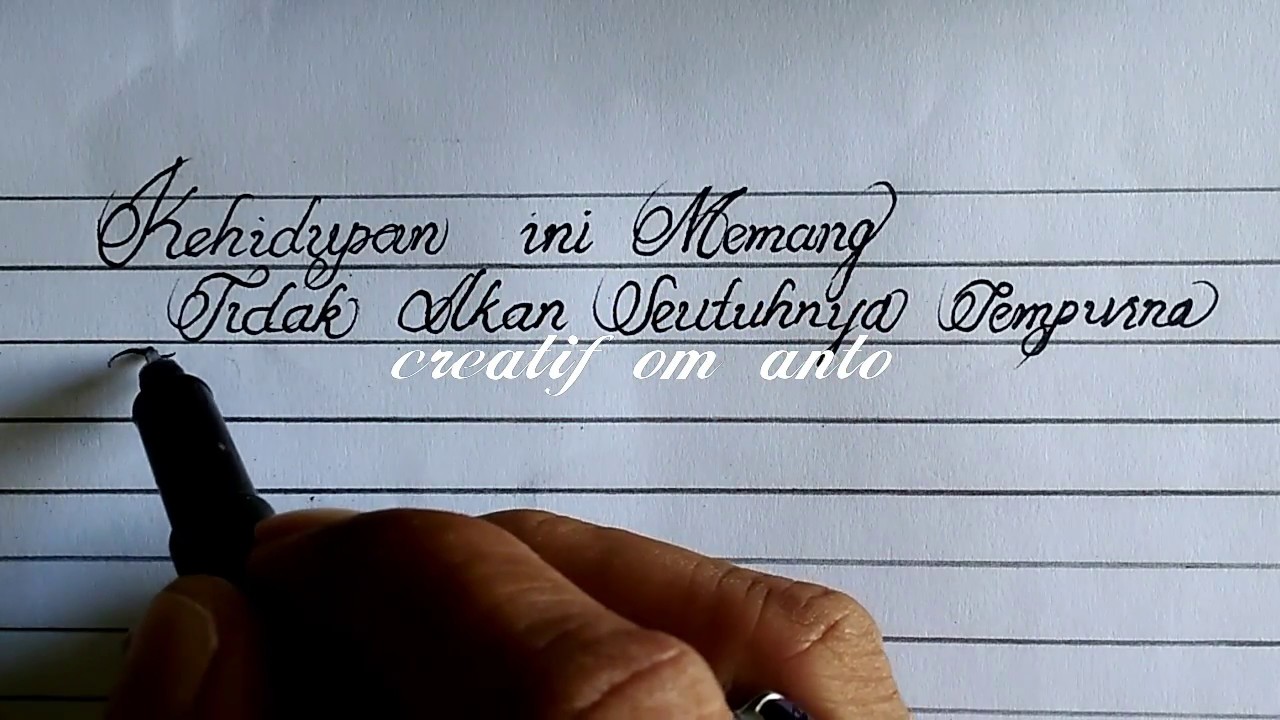 Kehidupan ini Memang
Tidak Akan Seutuhnya Sempurna
creatif om anto